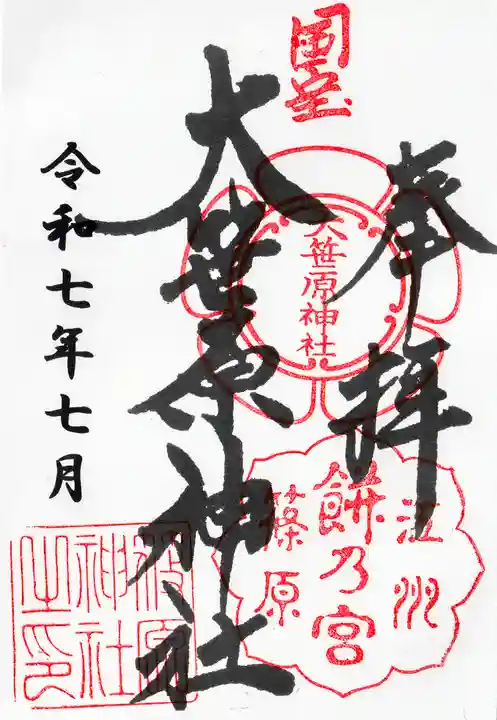 奉拝
国宝
大笹原神社
大笹原神社
江州
餅乃宮
篠原
令和七年七月
神社
之印